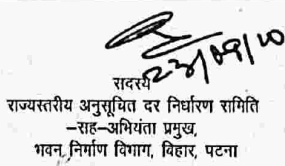 23/09/10
सदस्य
राज्यस्तरीय अनुसूचित दर निर्धारण समिति
–सह–अभियंता प्रमुख,
भवन निर्माण विभाग, बिहार, पटना